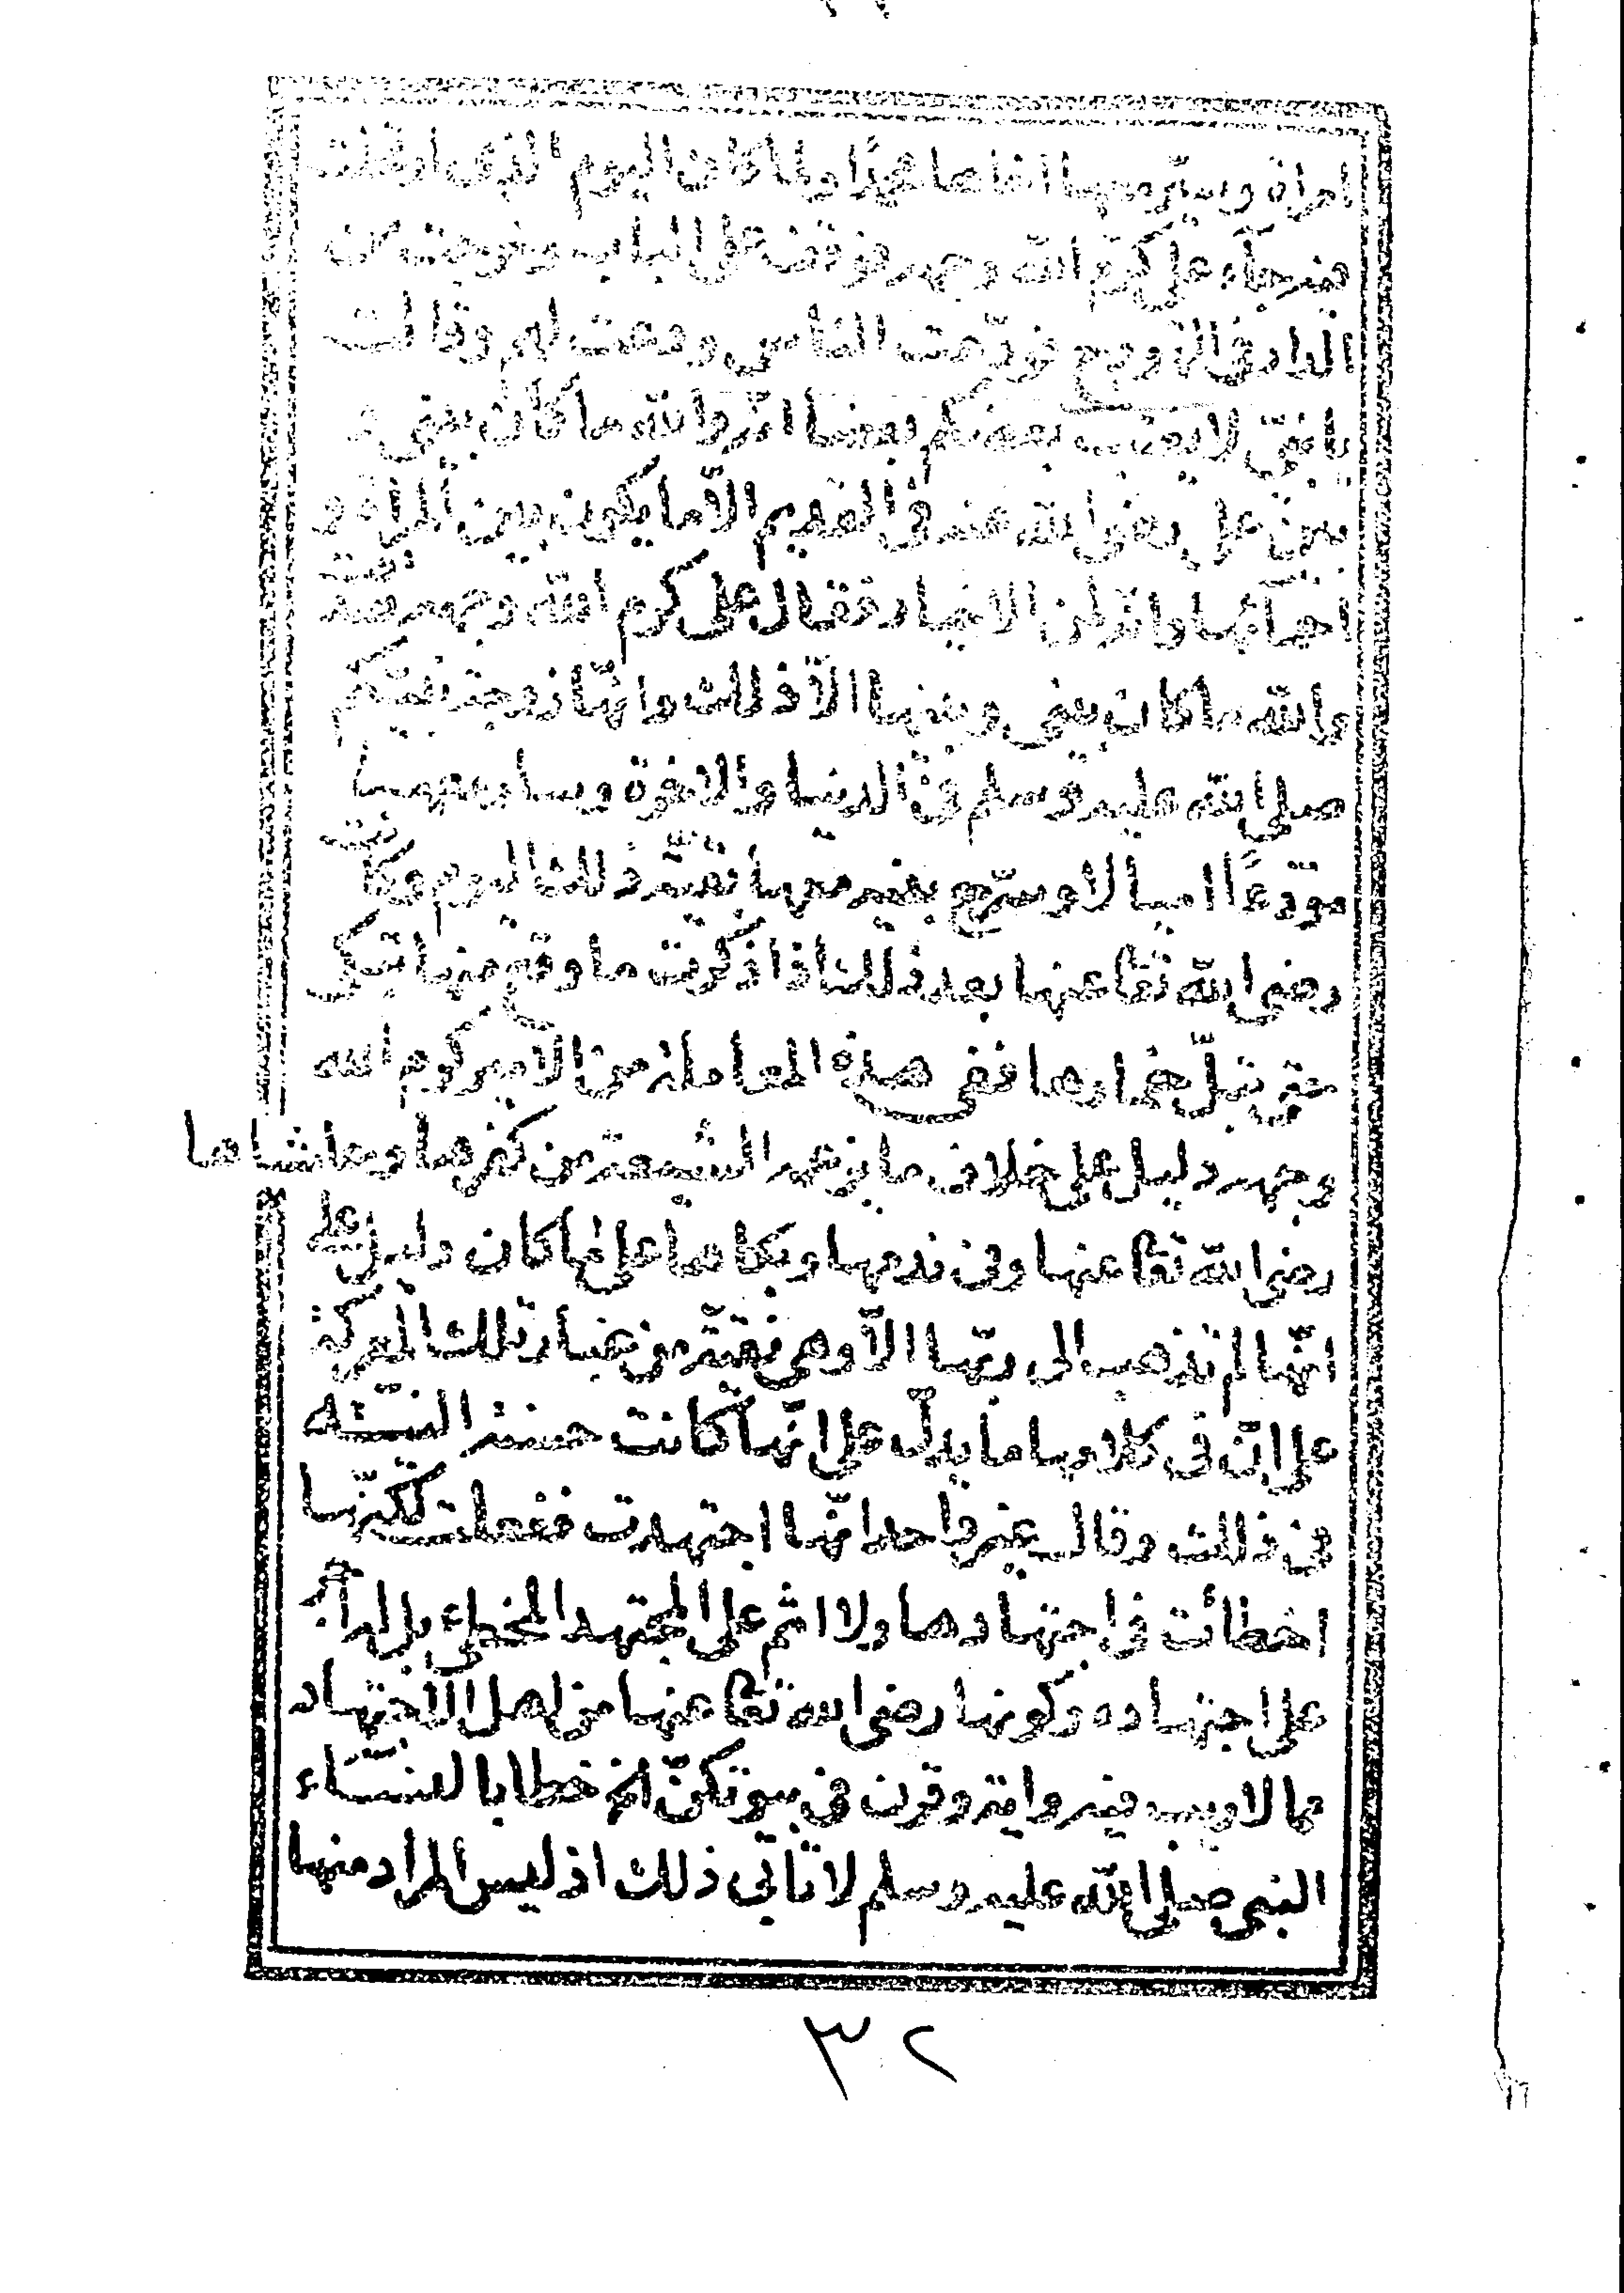 امراة وسير معها اخاها محمدا ولما كان اليوم الذى ارتحلت
فيه جآء على كرّم الله وجهه فوقف على الباب وخرجت من
الدار فى الهودج فودّعت الناس ودعت لهم وقالت
يا بنىّ لا يعتب بعضكم بعضا انّه والله ما كان بينى و
بين على رضى الله عنه فى القديم الّا ما يكون بين المرأة و
احمآئها وانّه لمن الاخيار فقال على كرم الله وجهه صدقت
والله ما كان بينى وبينها الّا ذلك وانّها زوجة نبيّكم
صلى الله عليه وسلم فى الدنيا والاخرة وسار معها
مودّعًا اميالا وسرّح بنيه معها بقيّة ذلك اليوم وكانت
رضى الله تعا عنها بعد ذلك اذا ذكرت ما وقع منها تبكى
حتى تبلّ خمارها ففى هذه المعاملة من الامير كرم الله
وجهه دليل على خلاف ما يزعمه الشيعة من كفرها وحاشاها
رضى الله تعا عنها وفى ندمها وبكائها على ما كان دليل على
انّها لم تذهب الى ربّها الّا وهى نقيّة من غبار تلك المعركة
على انّ فى كلامها ما يدلّ على انّها كانت حسنة النيّة
فى ذلك وقال غير واحد انّها اجتهدت ففعلت لكنّها
اخطأت فى اجتهادها ولا اثم على المجتهد المخطئ بل له أجر
على اجتهاده وكونها رضى الله تعا عنها من اهل الاجتهاد
مما لا ريب فيه واية وقرن فى بيوتكنّ الخ خطابا لنسآء
النبى صلى الله عليه وسلم لا تأبى ذلك اذ ليس المراد منها
٣٢